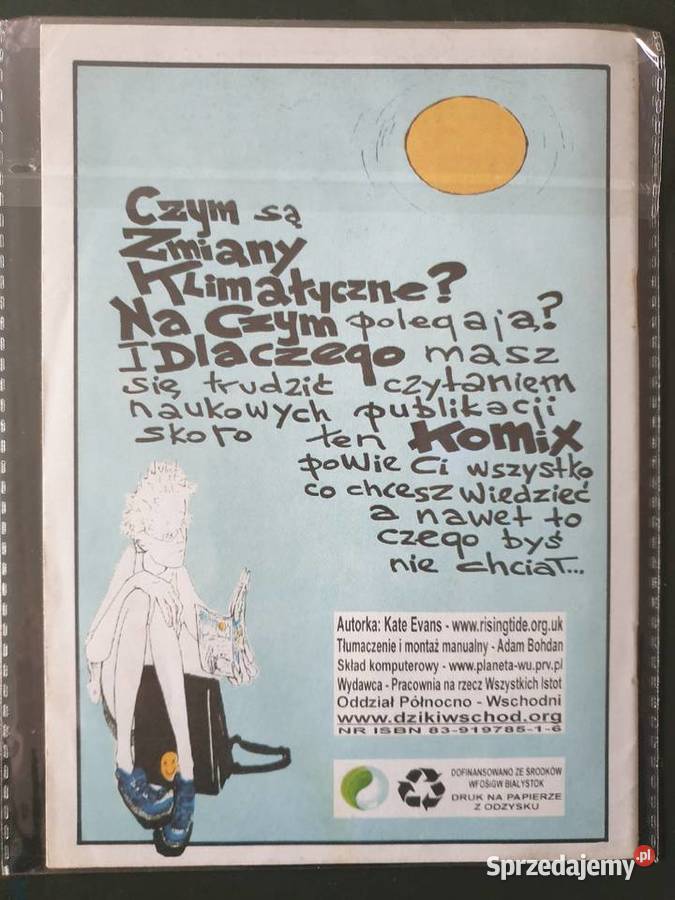 Czym są
Zmiany
Klimatyczne?
Na Czym polegają?
I Dlaczego masz
się trudzić czytaniem
naukowych publikacji
skoro ten Komix
powie Ci wszystko
co chcesz wiedzieć
a nawet to
czego byś
nie chciał...
Autorka: Kate Evans - www.risingtide.org.uk
Tłumaczenie i montaż manualny - Adam Bohdan
Skład komputerowy - www.planeta-wu.prv.pl
Wydawca - Pracownia na rzecz Wszystkich Istot
Oddział Północno - Wschodni
www.dzikiwschod.org
NR ISBN 83-919785-1-6
DOFINANSOWANO ZE ŚRODKÓW
WFOŚiGW BIAŁYSTOK
DRUK NA PAPIERZE
Z ODZYSKU
Sprzedajemy.pl